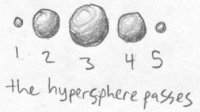 1 2 3 4 5
the hypersphere passes